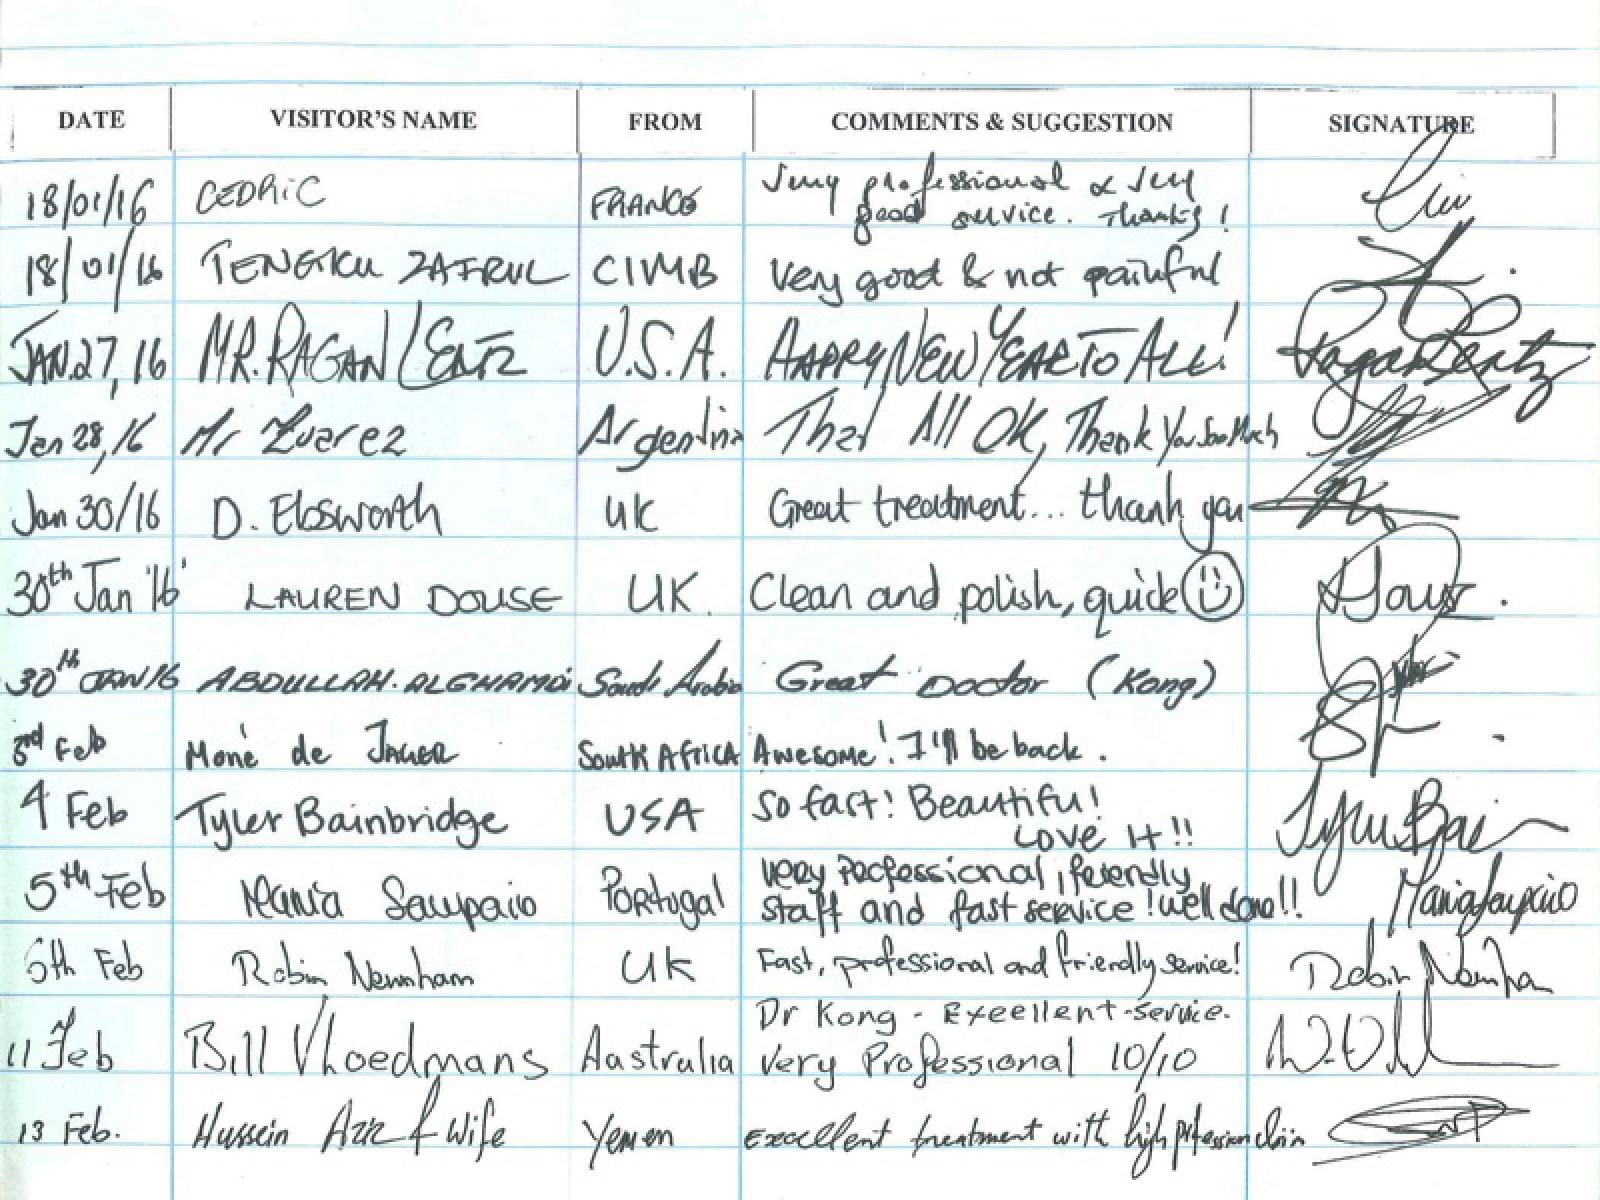 DATE VISITOR'S NAME FROM COMMENTS & SUGGESTION SIGNATURE
18/01/16 CEDRIC FRANCE Very professional & very
good service. Thanks!
18/01/16 TENGKU ZAFRUL CIMB Very good & not painful
JAN.27,16 MR. RAGAN LENTZ U.S.A. HAPPY NEW YEAR TO ALL! Ragan Lentz
Jan 28,16 Mr Zuarez Argentina That All OK, Thank You Soo Much
Jan 30/16 D. Ebsworth UK Great treatment... thank you
30th Jan '16' LAUREN DOUSE UK. Clean and polish, quick
30th JAN 16 ABDULLAH. ALGHAMDi Saudi Arabia Great Doctor (Kong)
3rd Feb Moné de JAGER South Africa Awesome! I'll be back.
4 Feb Tyler Bainbridge USA So fast! Beautiful!
LOVE It!!
5th Feb Maria Sampaio Portugal very Professional, friendly
staff and fast service! well done!! Maria Sampaio
6th Feb Robin Newnham UK Fast, professional and friendly service! Robin Newnham
Dr Kong - Exeellent-service.
11 Feb Bill Vloedmans Aastralia Very Professional 10/10
13 Feb. Hussein Aziz & Wife Yemen excellent treatment with high